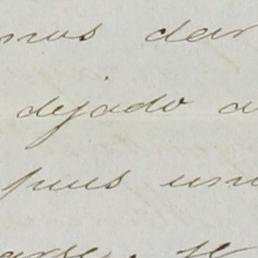 mos dar
dejado a
pues un
se